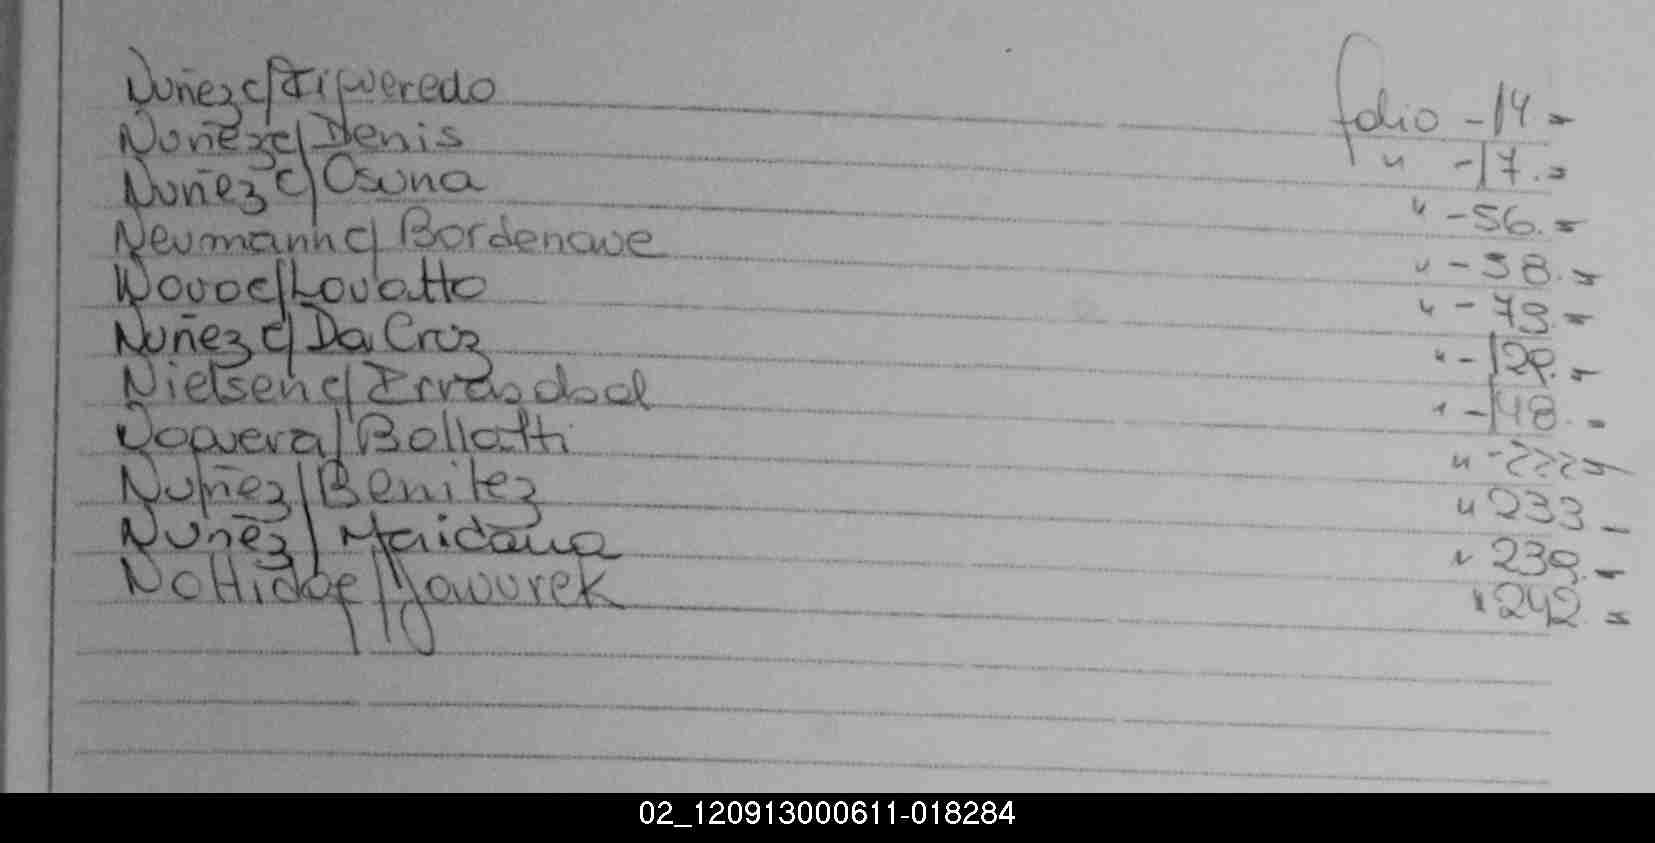 Nuñez c/ Figueredo folio -14.=
Nuñez c/ Denis " -17.=
Nuñez c/ Osuna " -56.=
Neumann c/ Bordenave " -58.=
Novo c/ Lovatto " -79.=
Nuñez c/ Da Cruz " -129.=
Nielsen c/ " -148.=
Noguera / Bollatti "
Nuñez / Benitez " 233_
Nuñez / Maidana " 239.=
Nottidge / Yawurek " 242.=
02_120913000611-018284